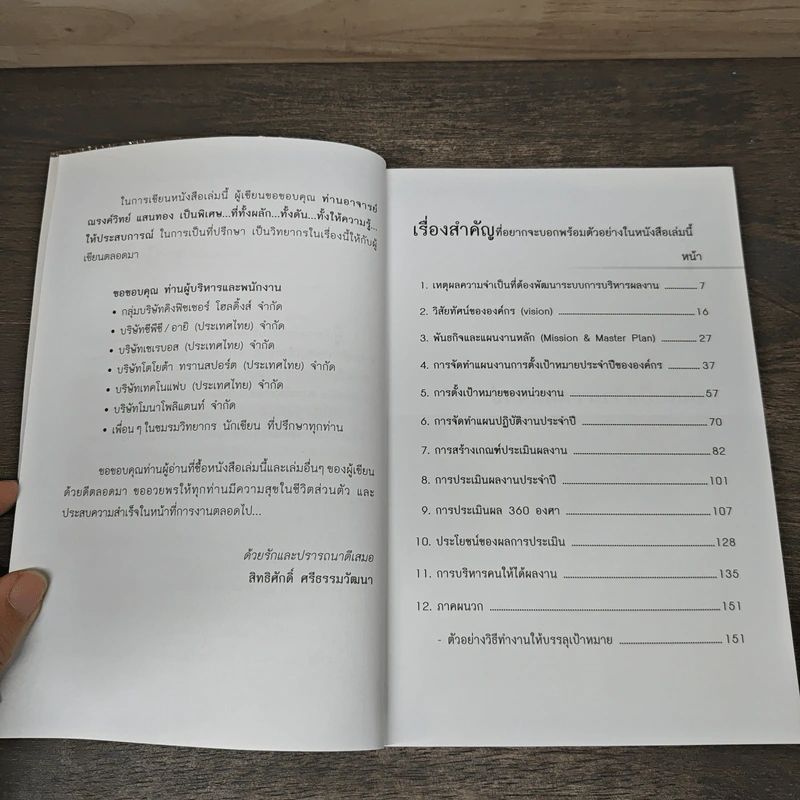 ในการเขียนหนังสือเล่มนี้ ผู้เขียนขอขอบคุณ ท่านอาจารย์
ณรงค์วิทย์ แสนทอง เป็นพิเศษ...ที่ทั้งผลัก...ทั้งดัน...ทั้งให้ความรู้...
ให้ประสบการณ์ ในการเป็นที่ปรึกษา เป็นวิทยากรในเรื่องนี้ให้กับผู้
เขียนตลอดมา
ขอขอบคุณ ท่านผู้บริหารและพนักงาน
• กลุ่มบริษัทคิงฟิชเชอร์ โฮลดิ้งส์ จำกัด
• บริษัทซีพีซี/อายิ (ประเทศไทย) จำกัด
• บริษัทเซเรบอส (ประเทศไทย) จำกัด
• บริษัทโตโยต้า ทรานสปอร์ต (ประเทศไทย) จำกัด
• บริษัทเทคโนแฟบ (ประเทศไทย) จำกัด
• บริษัทโมนาโพลิแตนท์ จำกัด
• เพื่อนๆ ในชมรมวิทยากร นักเขียน ที่ปรึกษาทุกท่าน
ขอขอบคุณท่านผู้อ่านที่ซื้อหนังสือเล่มนี้และเล่มอื่นๆ ของผู้เขียน
ด้วยดีตลอดมา ขออวยพรให้ทุกท่านมีความสุขในชีวิตส่วนตัว และ
ประสบความสำเร็จในหน้าที่การงานตลอดไป...
ด้วยรักและปรารถนาดีเสมอ
สิทธิศักดิ์ ศรีธรรมวัฒนา
เรื่องสำคัญที่อยากจะบอกพร้อมตัวอย่างในหนังสือเล่มนี้
หน้า
1. เหตุผลความจำเป็นที่ต้องพัฒนาระบบการบริหารผลงาน 7
2. วิสัยทัศน์ขององค์กร (vision) 16
3. พันธกิจและแผนงานหลัก (Mission & Master Plan) 27
4. การจัดทำแผนงานการตั้งเป้าหมายประจำปีขององค์กร 37
5. การตั้งเป้าหมายของหน่วยงาน 57
6. การจัดทำแผนปฏิบัติงานประจำปี 70
7. การสร้างเกณฑ์ประเมินผลงาน 82
8. การประเมินผลงานประจำปี 101
9. การประเมินผล 360 องศา 107
10. ประโยชน์ของผลการประเมิน 128
11. การบริหารคนให้ได้ผลงาน 135
12. ภาคผนวก 151
- ตัวอย่างวิธีทำงานให้บรรลุเป้าหมาย 151